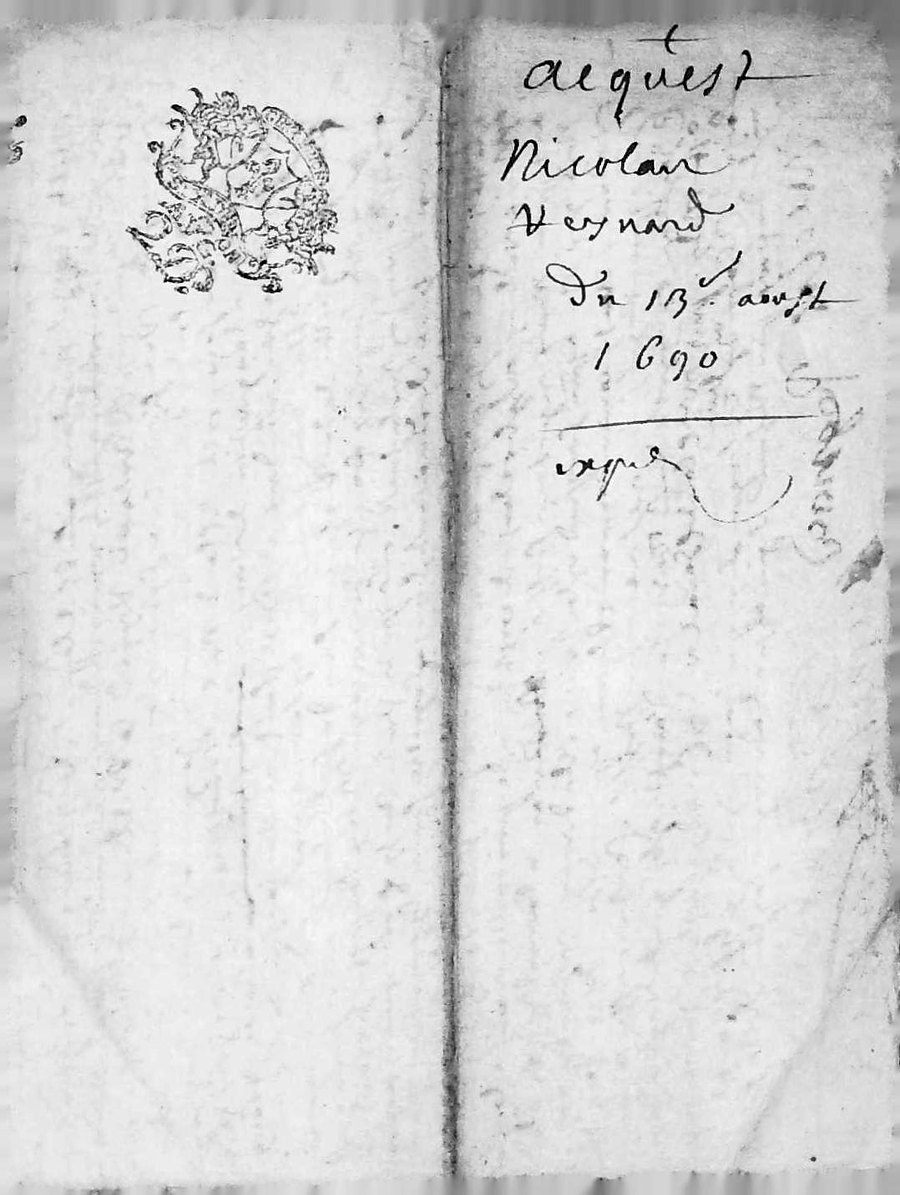 acquest
Nicolau
Veynard
du 13e aoust
1690